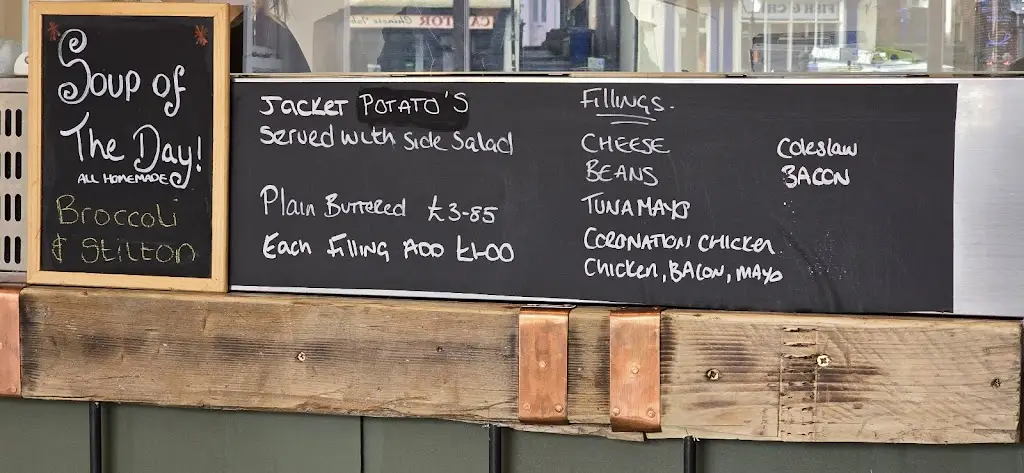 Soup of
The Day!
ALL HOMEMADE
Broccoli
& Stilton
Jacket POTATO'S
Served with Side Salad
Plain Buttered £3-85
Each Filling ADD £1-00
Fillings.
CHEESE
BEANS
TUNA MAYO
CORONATION CHICKEN
CHICKEN, BACON, MAYO
Coleslaw
BACON
FISH & CHI